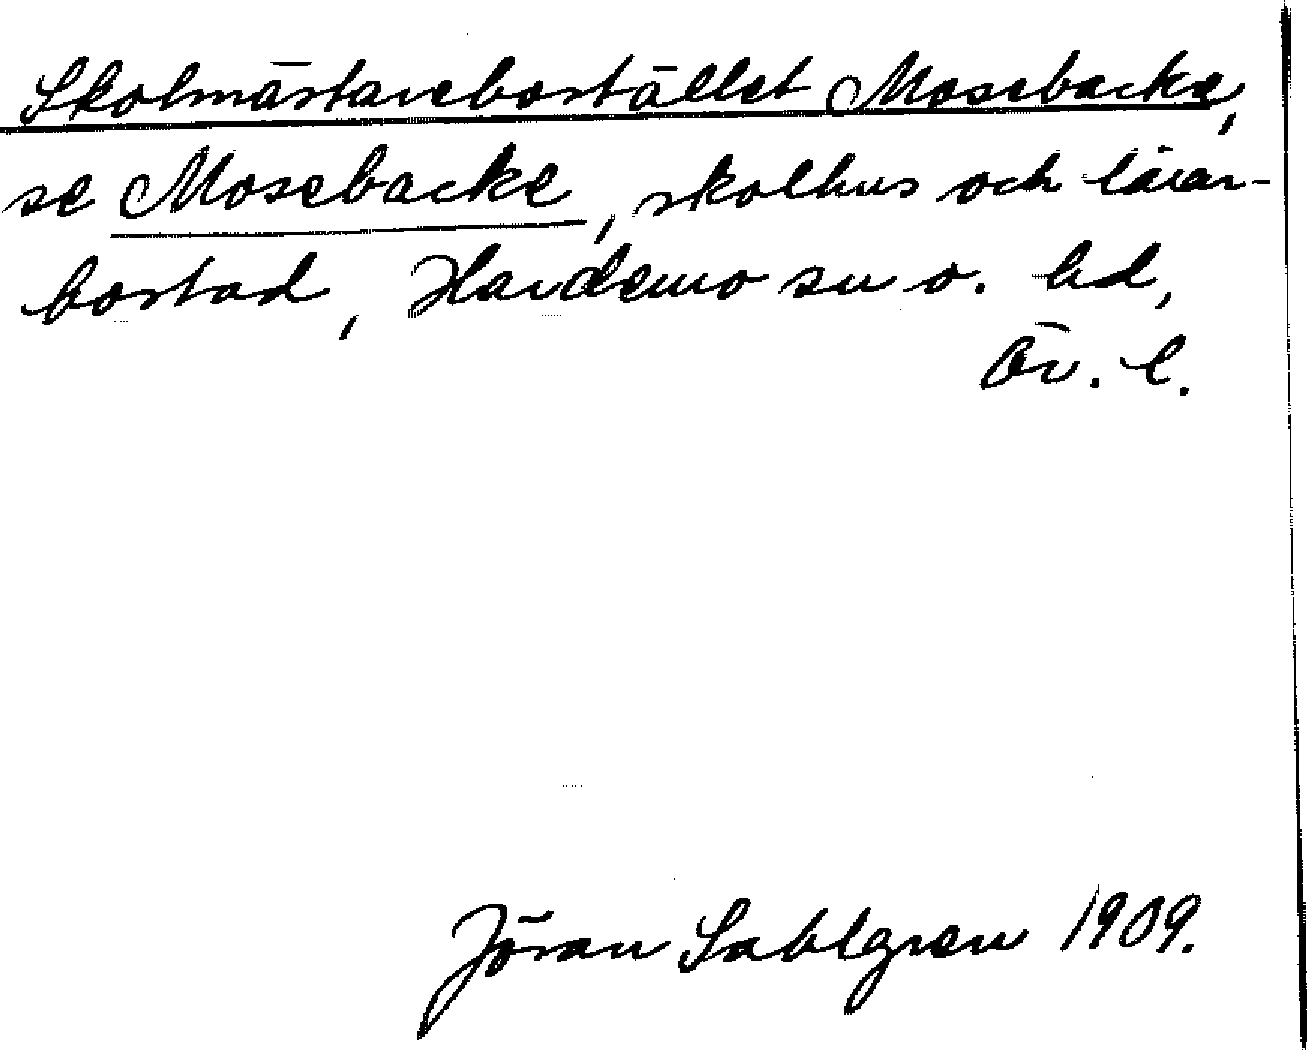 Skolmästarebostället Mosebacke,
se Mosebacke, skolhus och lärar-
bostad, Hardemo sn o. hd,
Ör. l.
Jöran Sahlgren 1909.